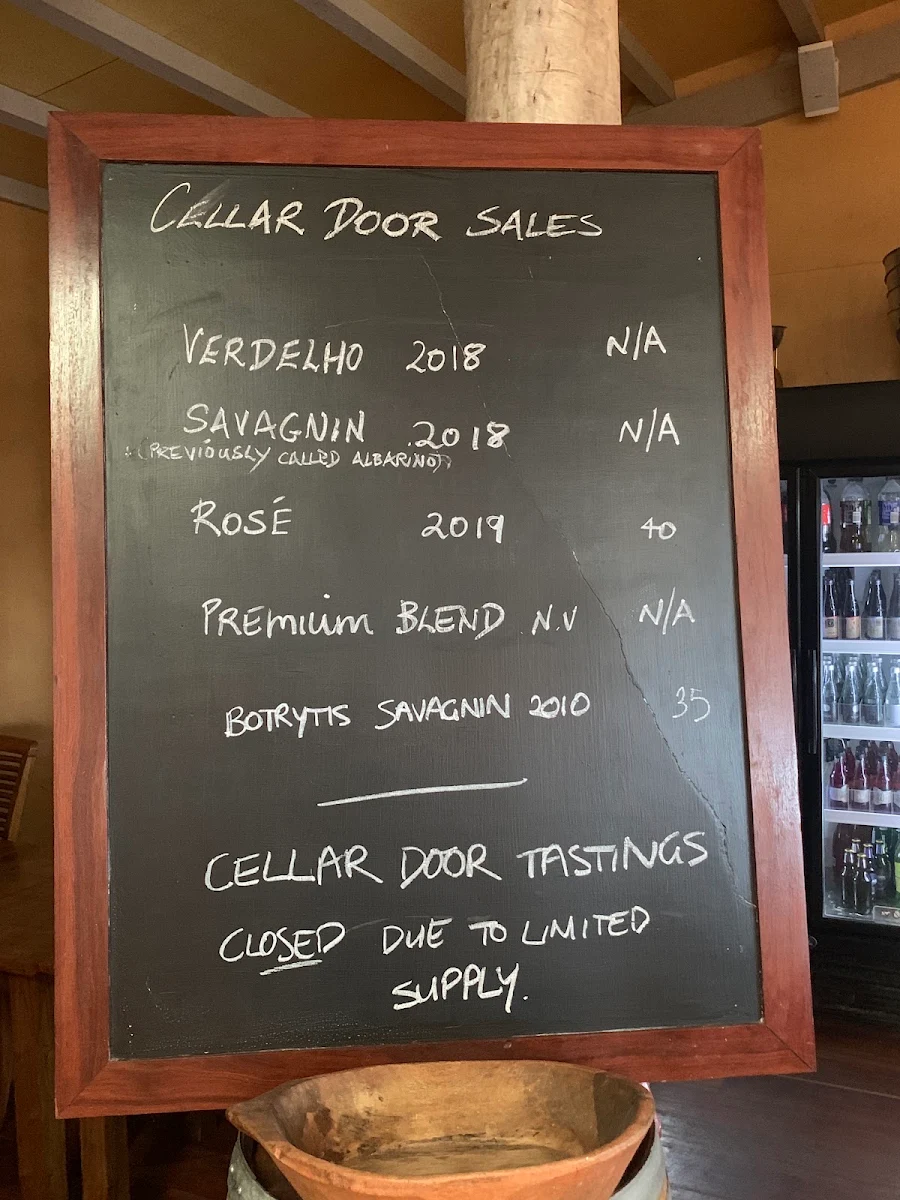 CELLAR DOOR SALES
VERDELHO 2018 N/A
SAVAGNIN 2018 N/A
(PREVIOUSLY CALLED ALBARINO)
ROSÉ 2019 40
PREMIUM BLEND N.V N/A
BOTRYTIS SAVAGNIN 2010 35
CELLAR DOOR TASTINGS
CLOSED DUE TO LIMITED
SUPPLY.